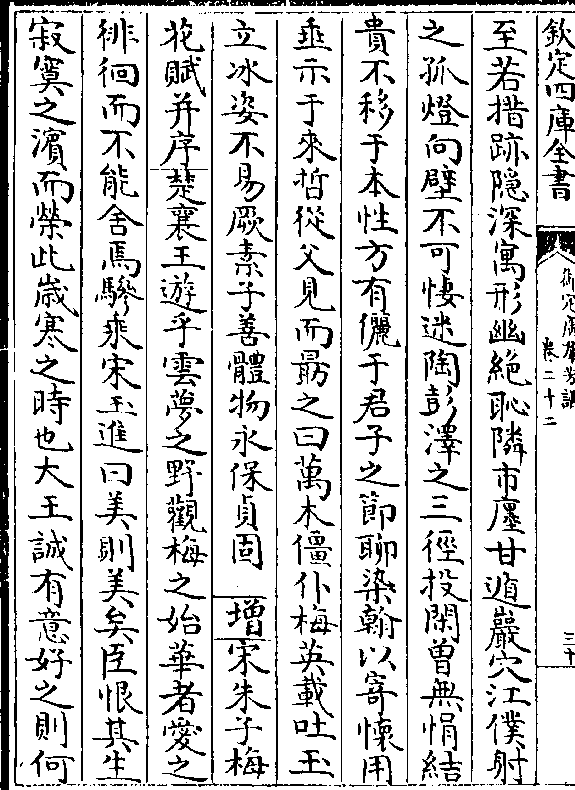 欽定四庫全書
御定佩文齋廣羣芳譜
卷二十二
三十
至若措跡隠深寓形幽絶恥隣市㕓甘遁巖穴江僕射
之孤燈向壁不可悽迷陶彭澤之三徑投閑曾無悁結
貴不移于本性方有儷于君子之節聊染翰以寄懷用
垂示于來哲從父見而勗之曰萬木僵仆梅英載吐玉
立冰姿不易厥素子善體物永保貞固 增宋朱子梅
花賦并序楚襄王遊乎雲夢之野觀梅之始華者愛之
徘徊而不能舍焉驂乘宋玉進曰美則美矣臣恨其生
寂寞之濵而榮此歳寒之時也大王誠有意好之則何